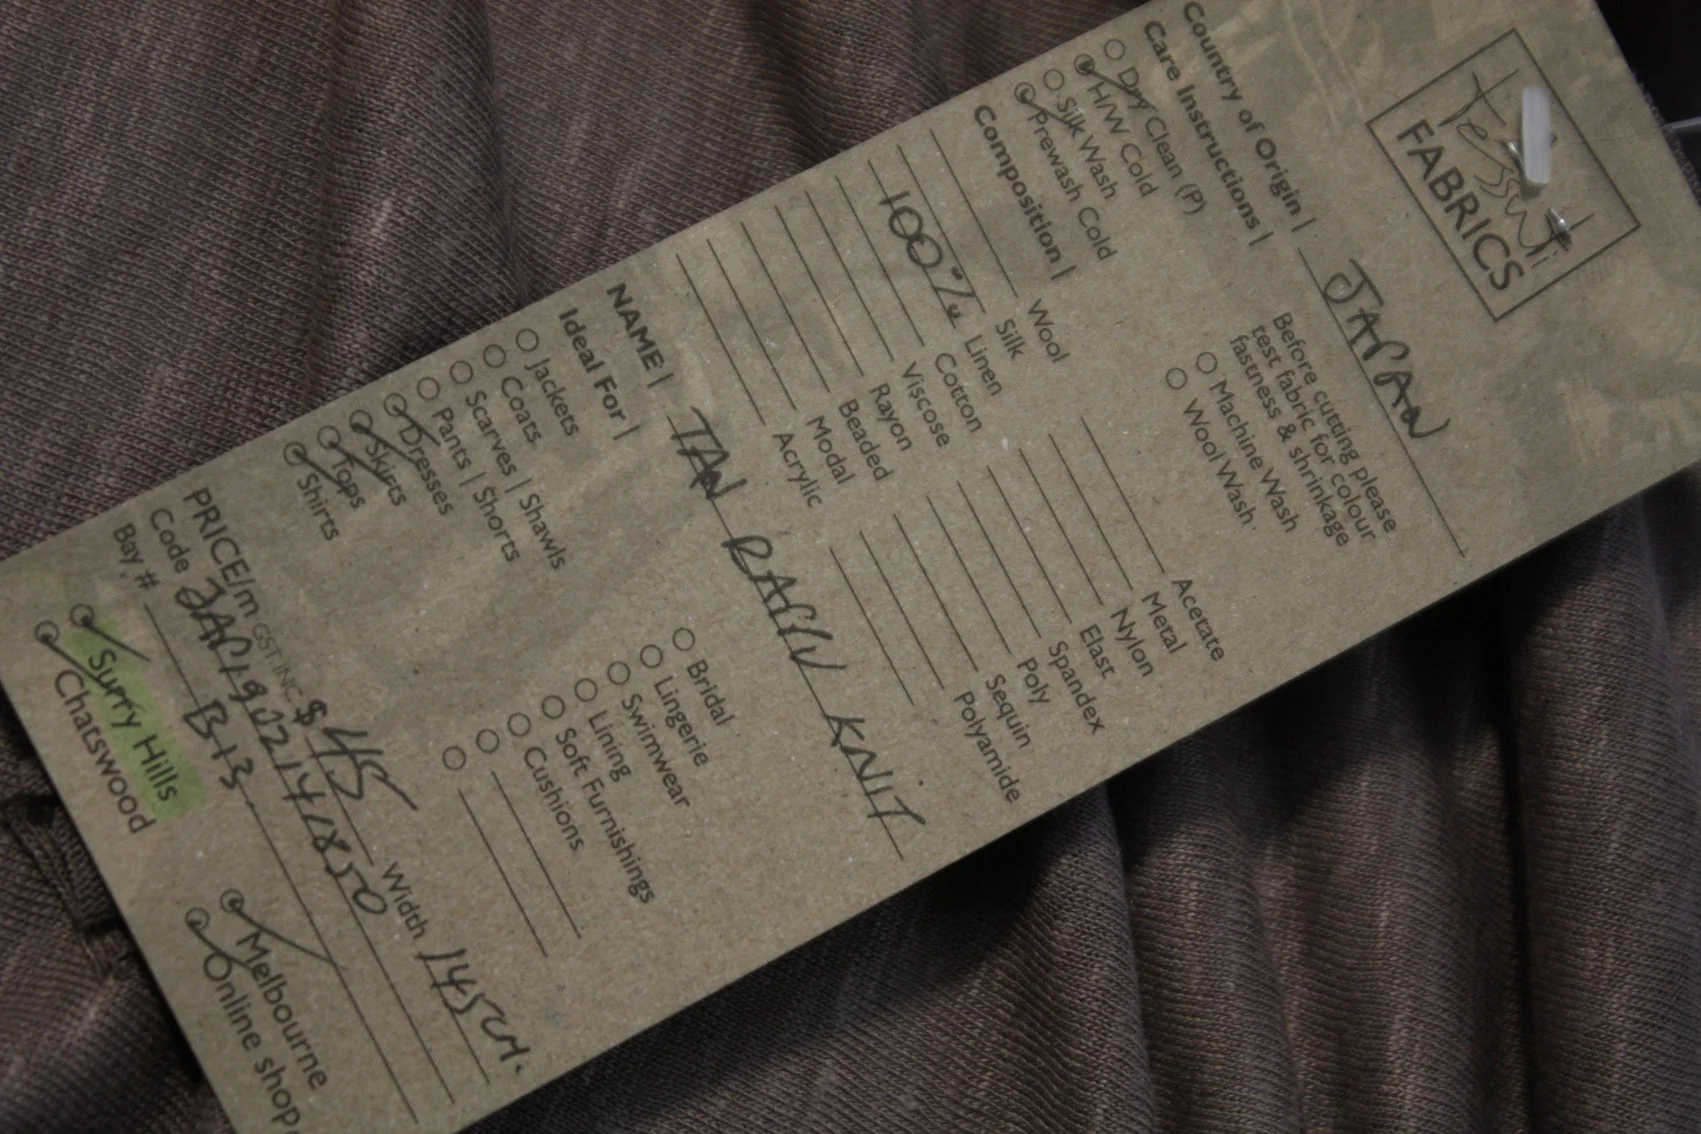 Tessuti
FABRICS
Country of Origin | JAPAN
Care Instructions |
Dry Clean (P)
H/W Cold
Silk Wash
Prewash Cold
Before cutting please
test fabric for colour
fastness & shrinkage
Machine Wash
Wool Wash
Composition |
Wool
Silk
100% Linen
Cotton
Viscose
Rayon
Beaded
Modal
Acrylic
Acetate
Metal
Nylon
Elast
Spandex
Poly
Sequin
Polyamide
NAME | TAN KNIT
Ideal For |
Jackets
Coats
Scarves | Shawls
Pants | Shorts
Dresses
Skirts
Tops
Shirts
Bridal
Lingerie
Swimwear
Lining
Soft Furnishings
Cushions
PRICE/m GST INC $45 Width 145cm.
Code
Bay # B13
Surry Hills
Chatswood
Melbourne
Online shop